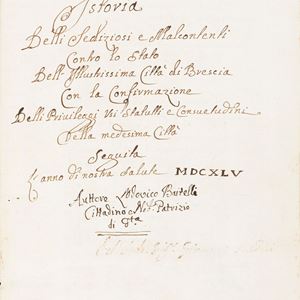 Istoria
Delli Sediziosi e Malcontenti
Contro lo Stato
Dell' Illustrissima Città di Brescia
Con la Confirmazione
Delli Privileggi Statutti e Consuetudini
della medesima Città
Seguita
L'anno di nostra salute MDCXLV
Auttore Lodovico Butelli
Cittadino e Patrizio
di